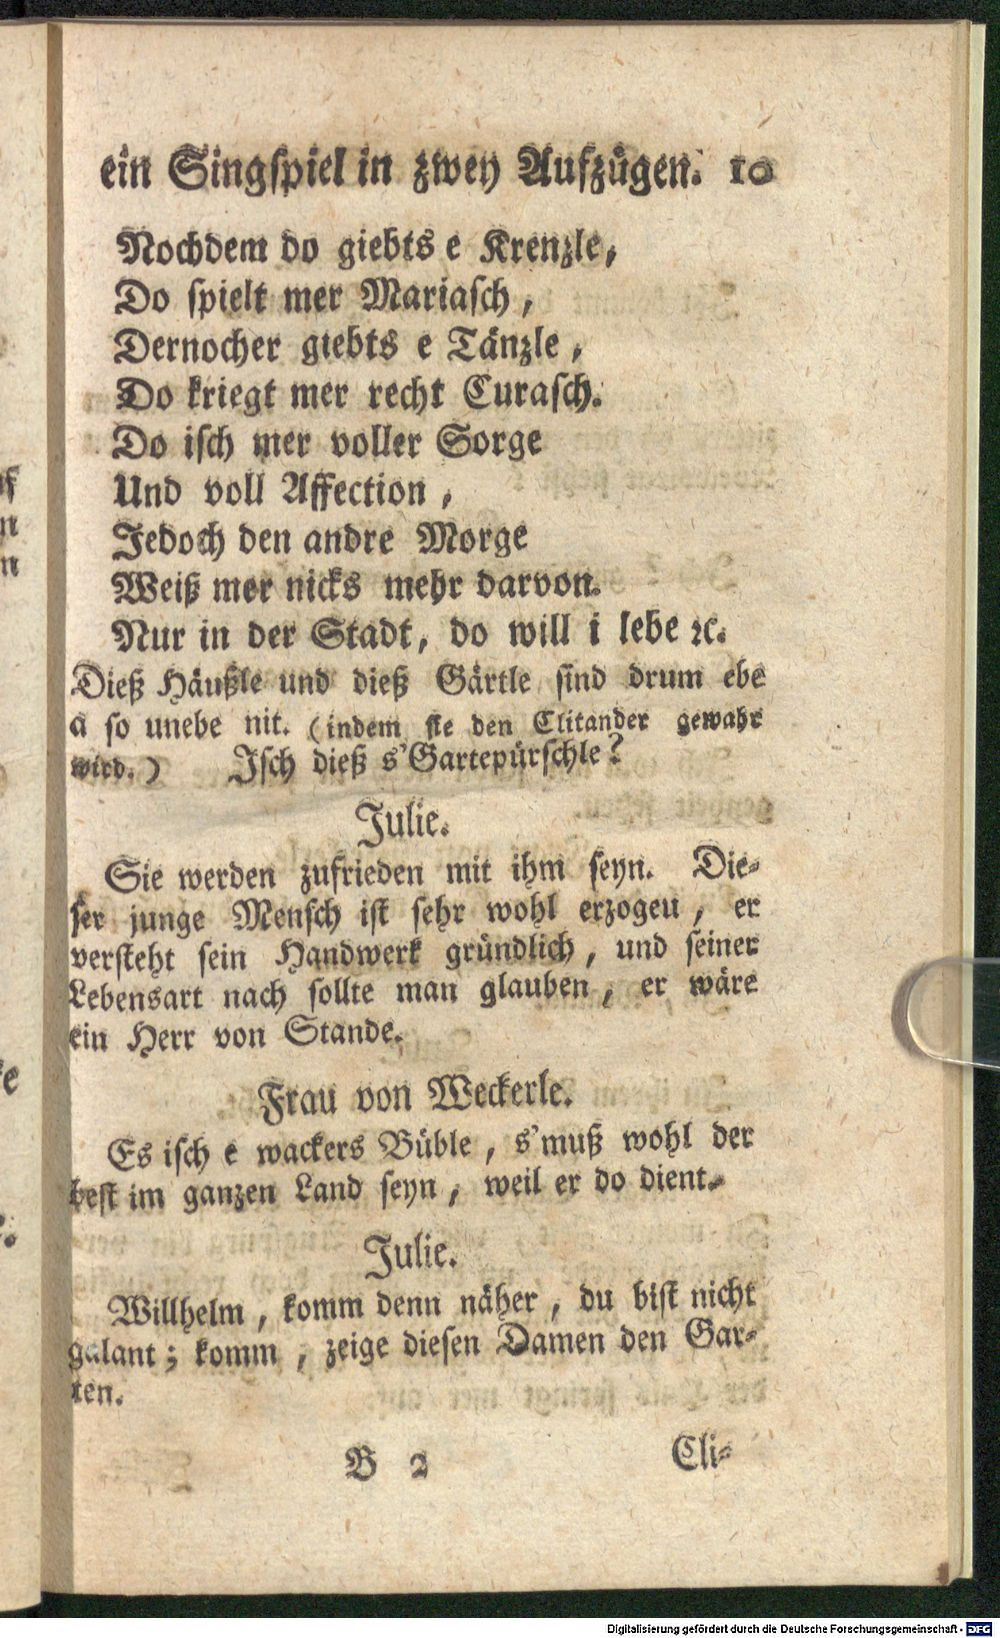 ein Singspiel in zwey Aufzügen. 10
Nochdem do giebts e Krenzle,
Do spielt mer Mariasch,
Dernocher giebts e Tänzle,
Do kriegt mer recht Curasch.
Do isch mer voller Sorge
Und voll Affection,
Jedoch den andre Morge
Weiß mer nicks mehr darvon.
Nur in der Stadt, do will i lebe ꝛc.
Dieß Häußle und dieß Gärtle sind drum ebe
a so unebe nit. (indem sie den Clitander gewahr
wird.) Isch dieß s'Gartepürschle?
Julie.
Sie werden zufrieden mit ihm seyn. Die-
ser junge Mensch ist sehr wohl erzogeu, er
versteht sein Handwerk gründlich, und seiner
Lebensart nach sollte man glauben, er wäre
ein Herr von Stande.
Frau von Weckerle.
Es isch e wackers Büble, s'muß wohl der
best im ganzen Land seyn, weil er do dient.
Julie.
Willhelm, komm denn näher, du bist nicht
galant; komm, zeige diesen Damen den Gar-
ten.
B 2 Cli-
Digitalisierung gefördert durch die Deutsche Forschungsgemeinschaft - DFG